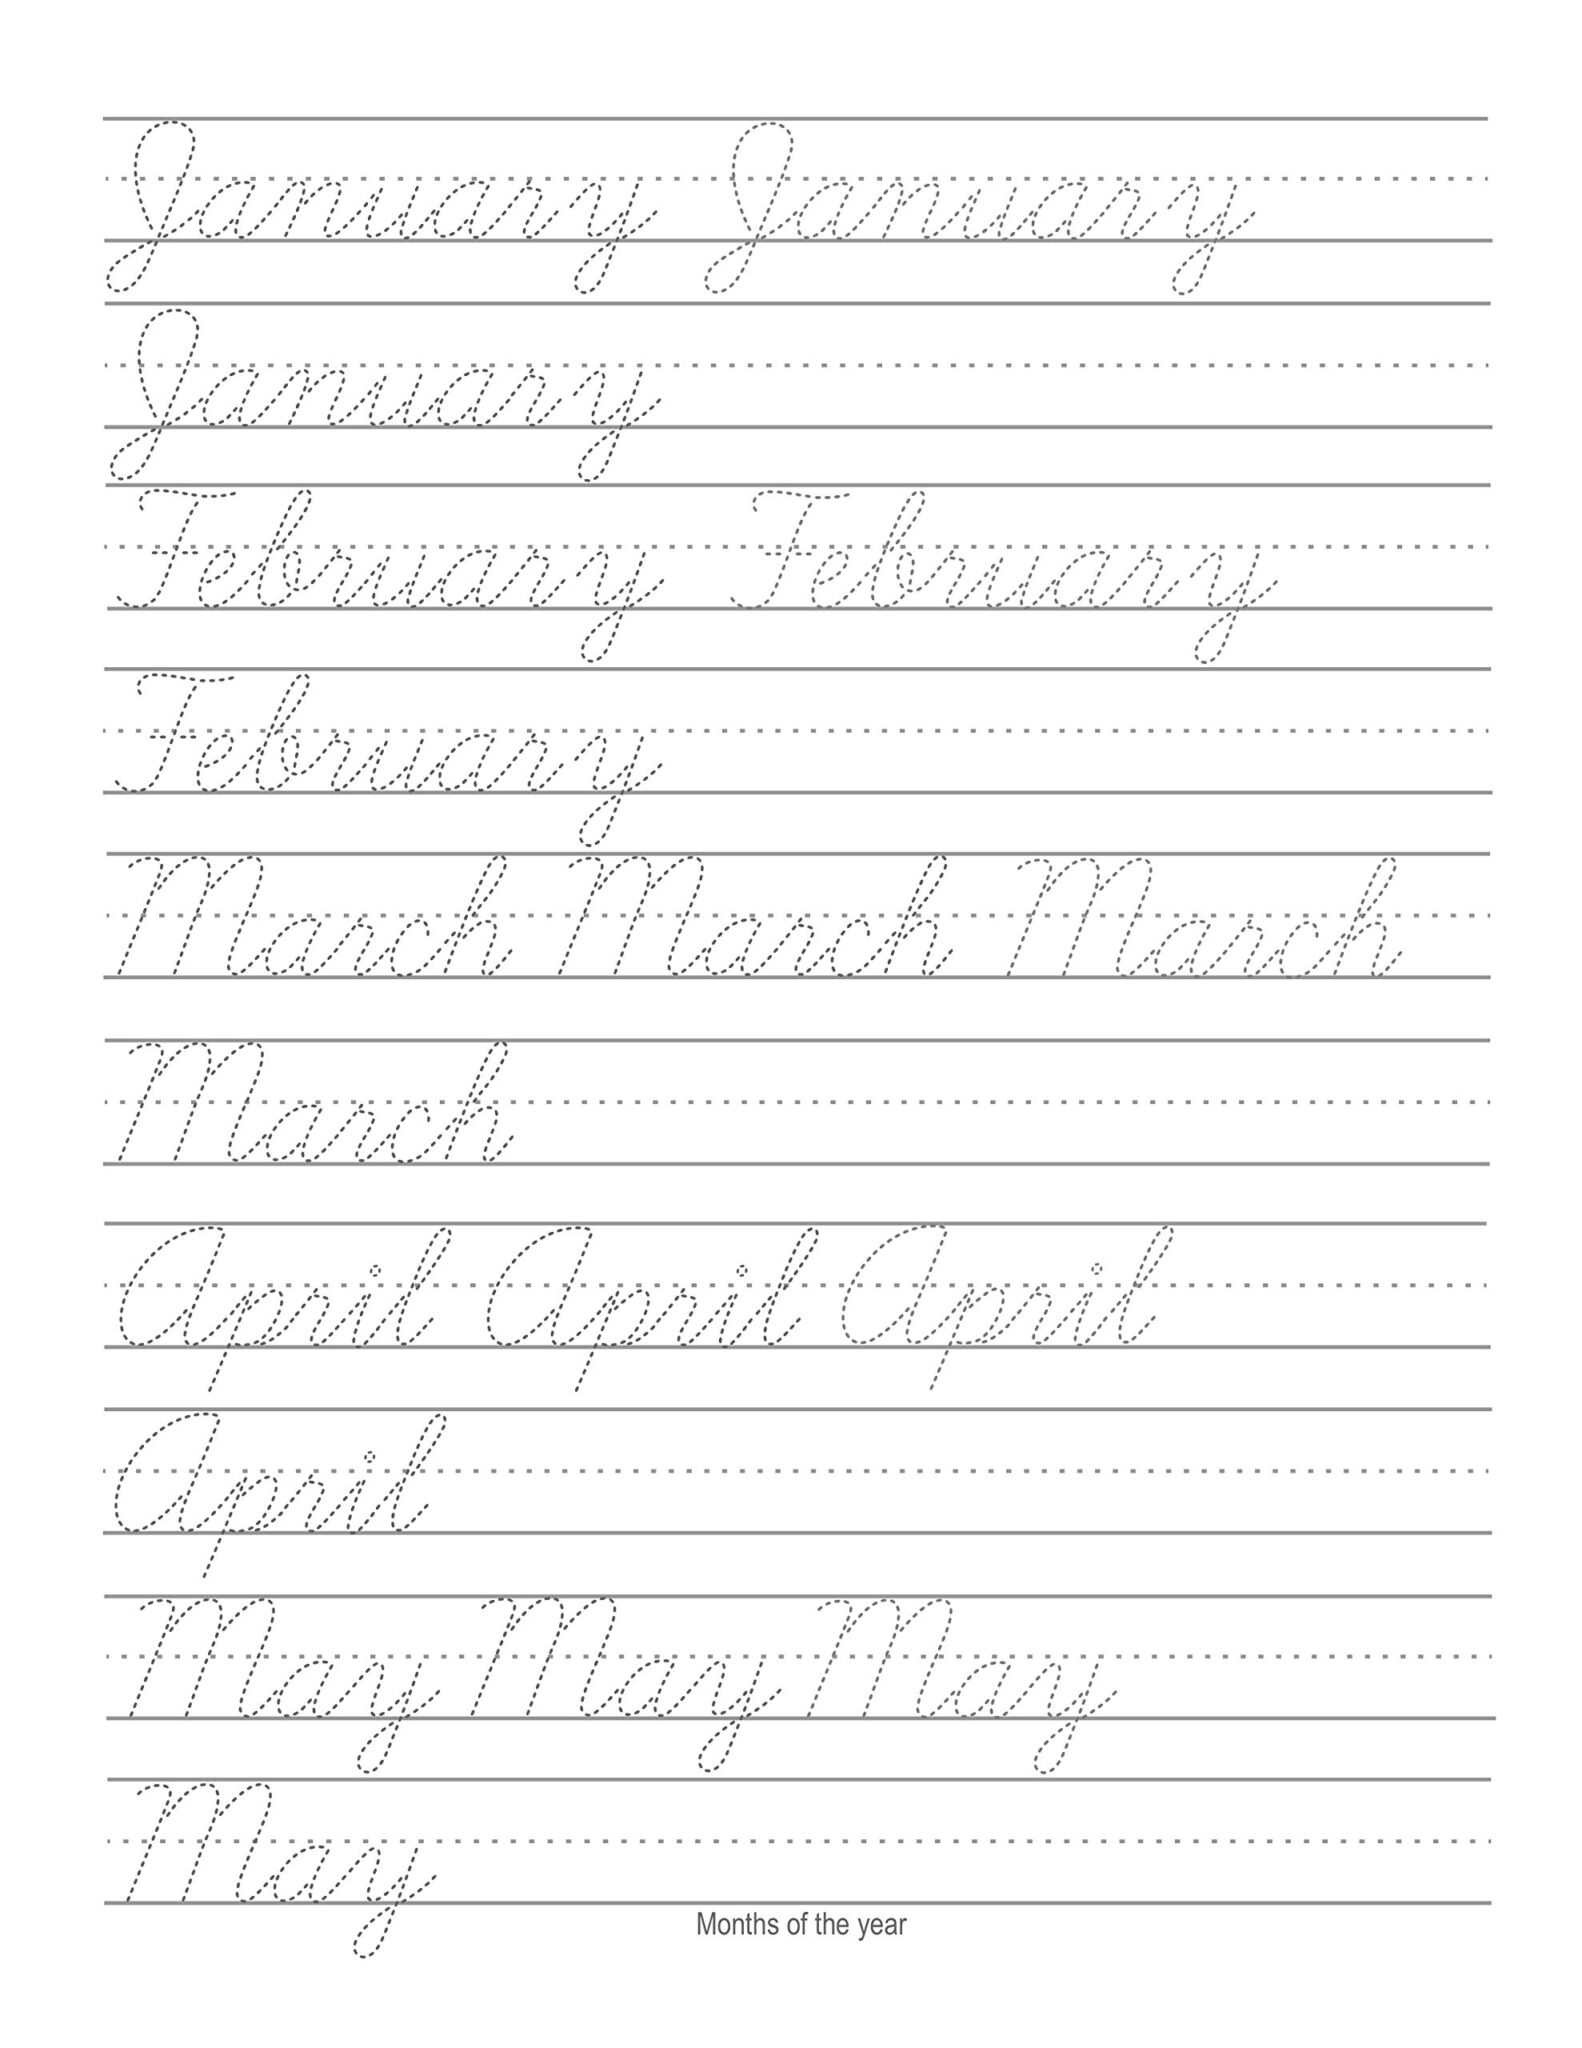 January January
January
February February
February
March March March
March
April April April
April
May May May
May
Months of the year